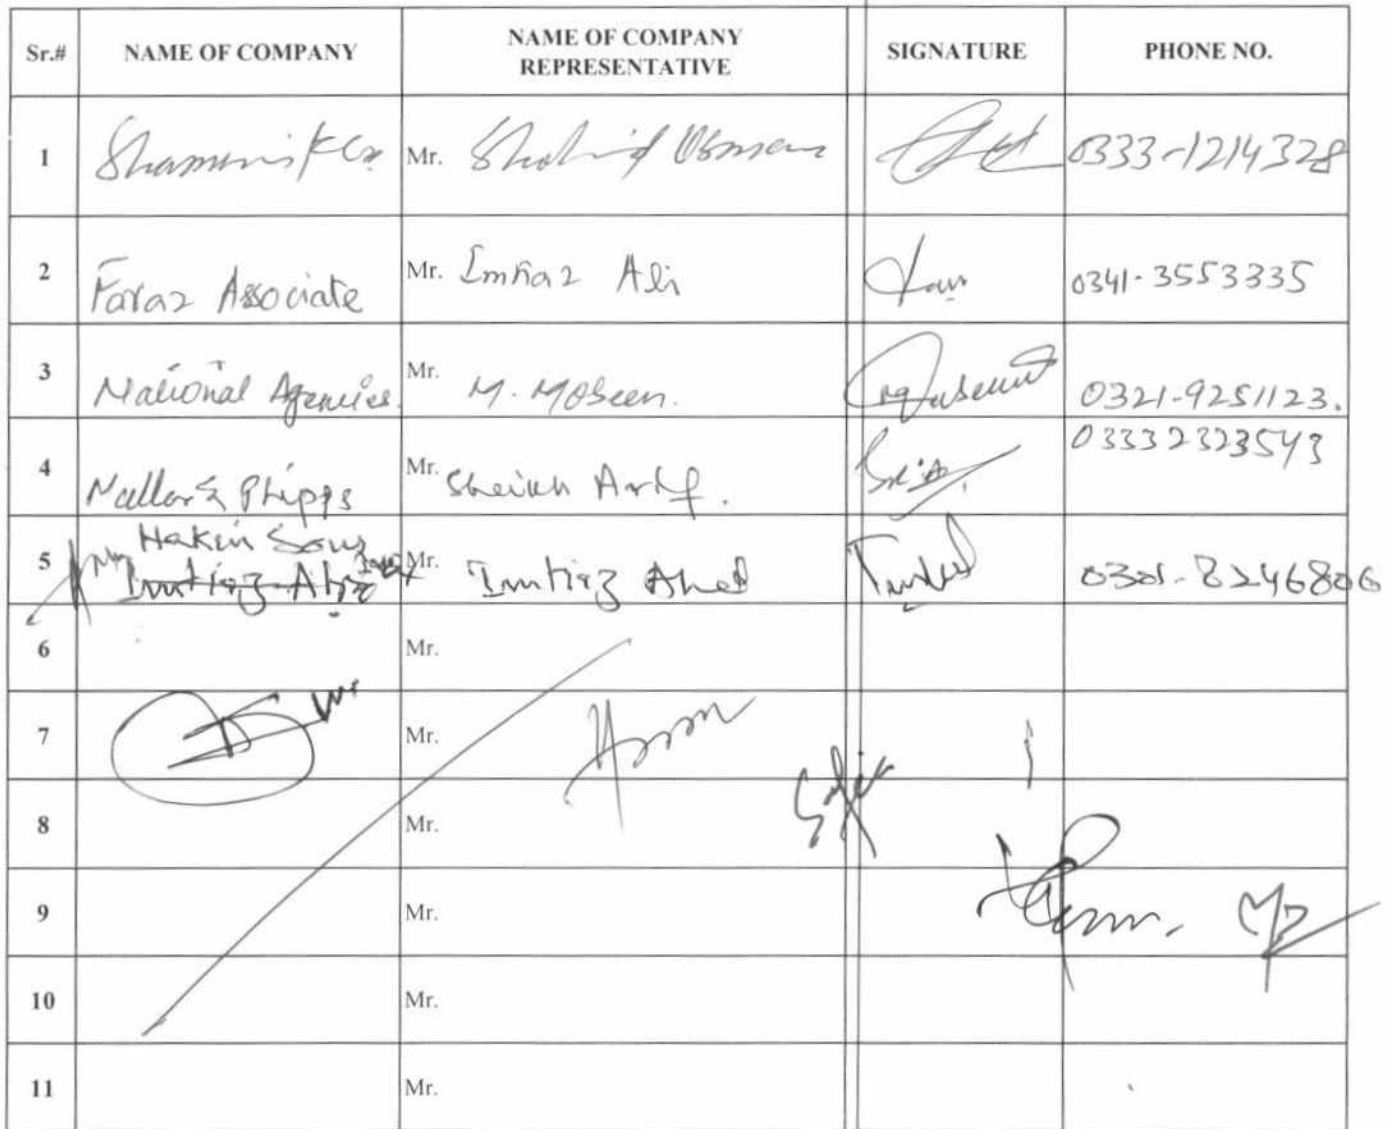 Sr.# NAME OF COMPANY NAME OF COMPANY REPRESENTATIVE SIGNATURE PHONE NO.
1 Mr. Shahid Usman 0333-1214328
2 Faraz Associate Mr. Imtiaz Ali 0341-3553335
3 National Agencies. Mr. M. Mobeen. 0321-9251123.
4 Muller & Phipps Mr. Sheikh Arif. 03332323543
5 Hakim Sons Mr. Imtiaz Ahed 0301-8246806
6 Mr.
7 Mr.
8 Mr.
9 Mr.
10 Mr.
11 Mr.